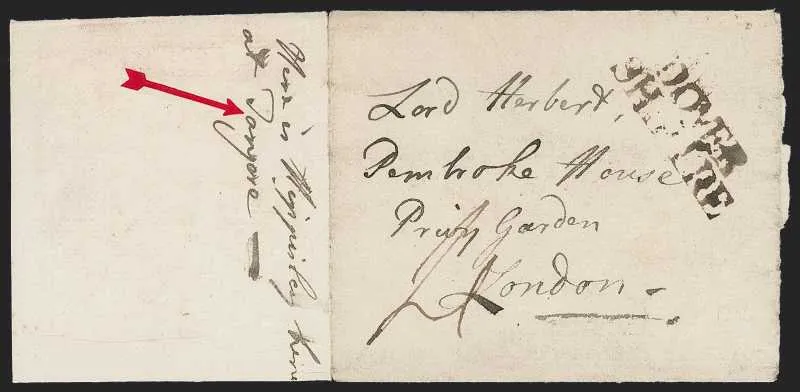 is Hippisley here
at Tanjore —
Lord Herbert,
Pembroke House
Privy Garden
London -
DOVER
SHIP LRE